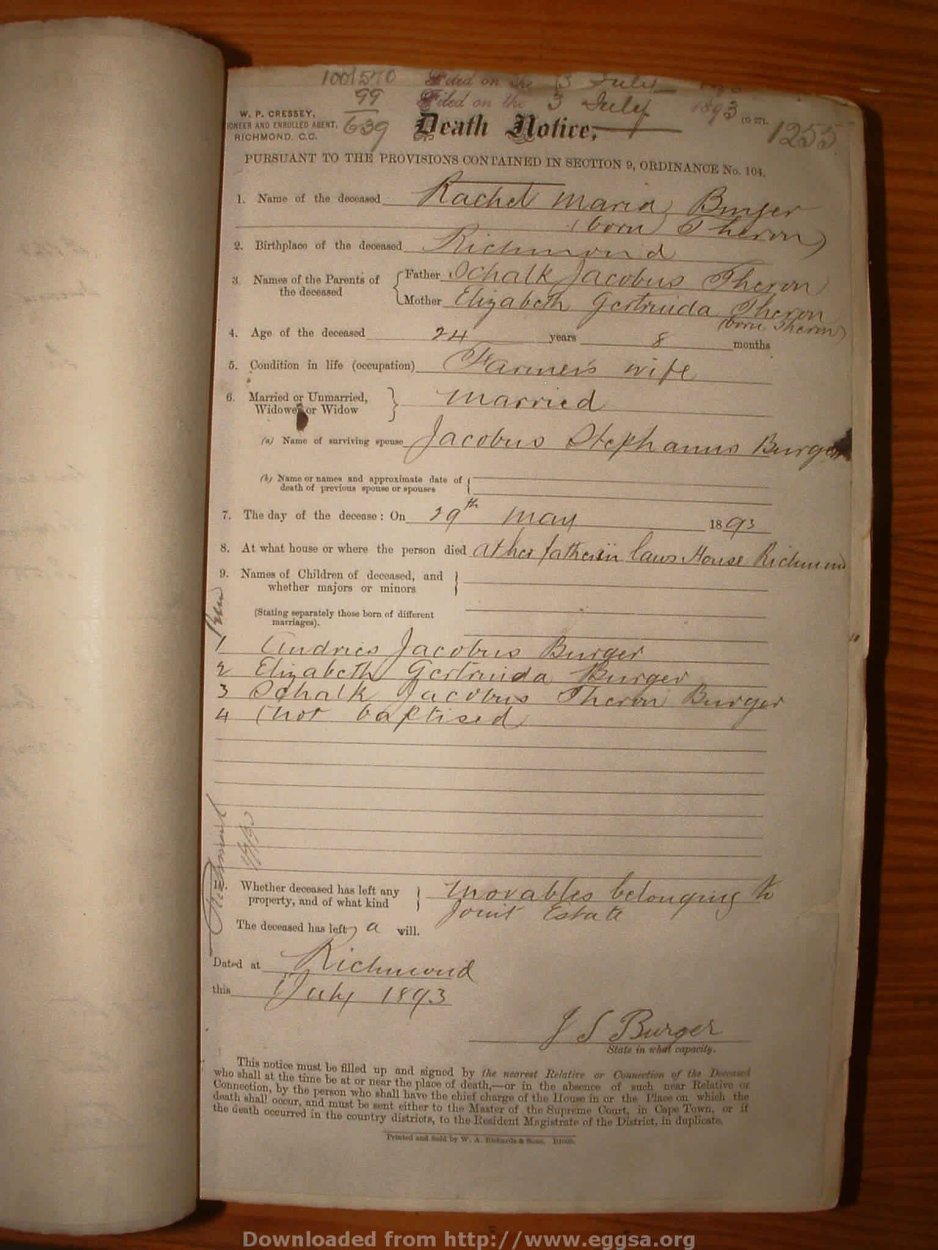 1001570 Filed on the 3 July
99 Filed on the 3 July 1893
W. P. CRESSEY,
AND ENROLLED AGENT,
RICHMOND. C.C.
639 Death Notice, 1255
PURSUANT TO THE PROVISIONS CONTAINED IN SECTION 9, ORDINANCE No. 104.
1. Name of the deceased Rachel Maria Burger
(born Theron)
2. Birthplace of the deceased Richmond
3. Names of the Parents of the deceased { Father Schalk Jacobus Theron
Mother Elizabeth Gertruida Theron
(born Theron)
4. Age of the deceased 24 years 8 months
5. Condition in life (occupation) Farmer's wife
6. Married or Unmarried,
Widower or Widow } married
(a) Name of surviving spouse Jacobus Stephanus Burger
(b) Name or names and approximate date of
death of previous spouse or spouses {
7. The day of the decease: On 29th May 1893
8. At what house or where the person died at her father in laws House Richmond
9. Names of Children of deceased, and
whether majors or minors }
(Stating separately those born of different
marriages).
1 Andries Jacobus Burger
2 Elizabeth Gertruida Burger
3 Schalk Jacobus Theron Burger
4 (not baptised)
Richmond
10. Whether deceased has left any
property, and of what kind } movables belonging to
Joint Estate
The deceased has left a will.
Dated at Richmond
this July 1893
J S Burger
State in what capacity.
This notice must be filled up and signed by the nearest Relative or Connection of the Deceased
who shall at the time be at or near the place of death,—or in the absence of such near Relative or
Connection, by the person who shall have the chief charge of the House in or the Place on which the
death shall occur, and must be sent either to the Master of the Supreme Court, in Cape Town, or if
the death occurred in the country districts, to the Resident Magistrate of the District, in duplicate.
Printed and Sold by W. A. Richards & Sons.
Downloaded from http://www.eggsa.org